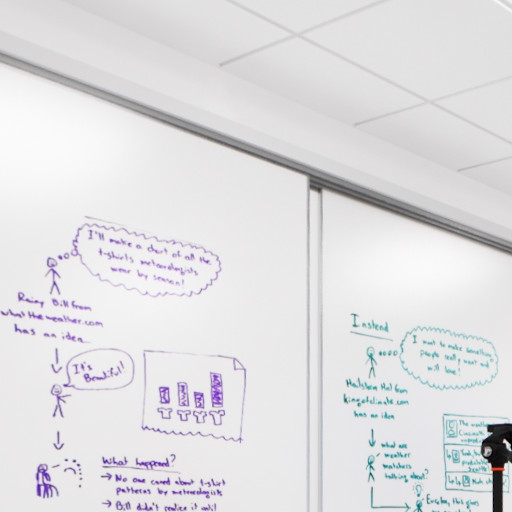 I'll make a chart of all the
t-shirts meteorologists
wear by season!
Rainy Bill from
whattheweather.com
has an idea...
It's
Beautiful!
What happened?
→ No one cared about t-shirt
patterns by meteorologists
→ Bill didn't realize it until
Instead
I want to make something
people really want and
will love!
Hailstorm Hal from
kingofclimate.com
has an idea
what are
weather
watchers
talking about?
The